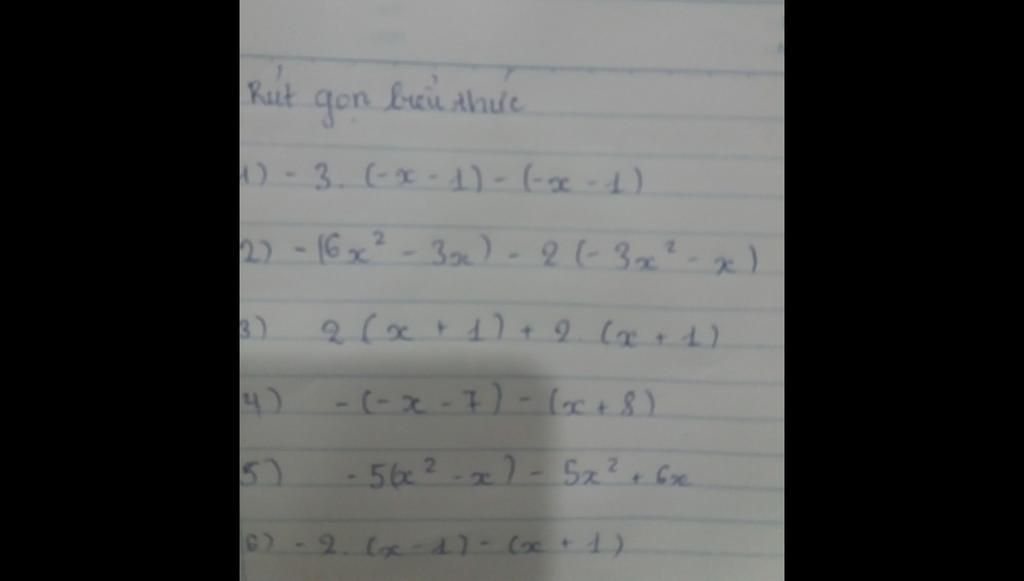 Rút gọn biểu thức
1) - 3. (-x - 1) - (-x - 1)
2) - (6x² - 3x) - 2 (- 3x² - x)
3) 2 (x + 1) + 2. (x + 1)
4) - (- x - 7) - (x + 8)
5) - 5(x² - x) - 5x² + 6x
6) - 2. (x - 1) - (x + 1)